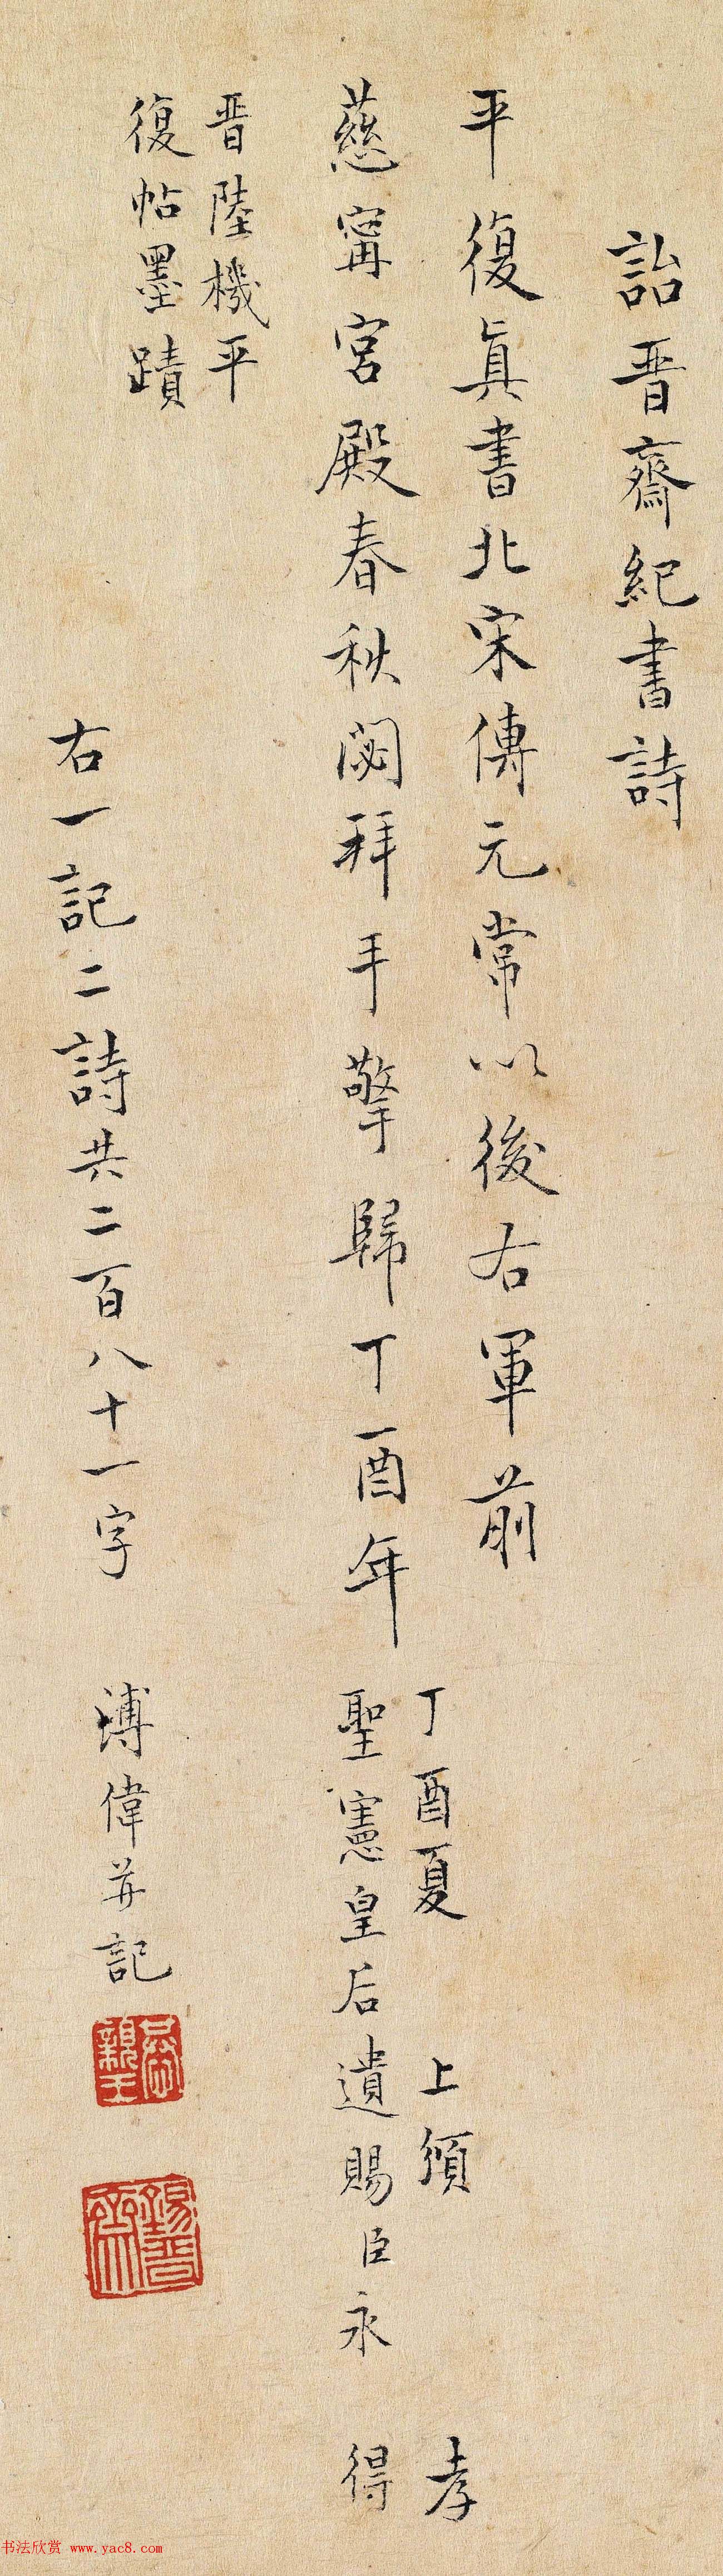 詒晉齋紀書詩
平復真書北宋傳元常以後右軍前
慈寧宮殿春秋閟拜手擎歸丁酉年
丁酉夏 上頒 孝
聖憲皇后遺賜臣永 得
晉陸機平
復帖墨蹟
右一記二詩共二百八十一字
溥偉并記
恭親王
錫晉齋
书法欣赏 www.yac8.com